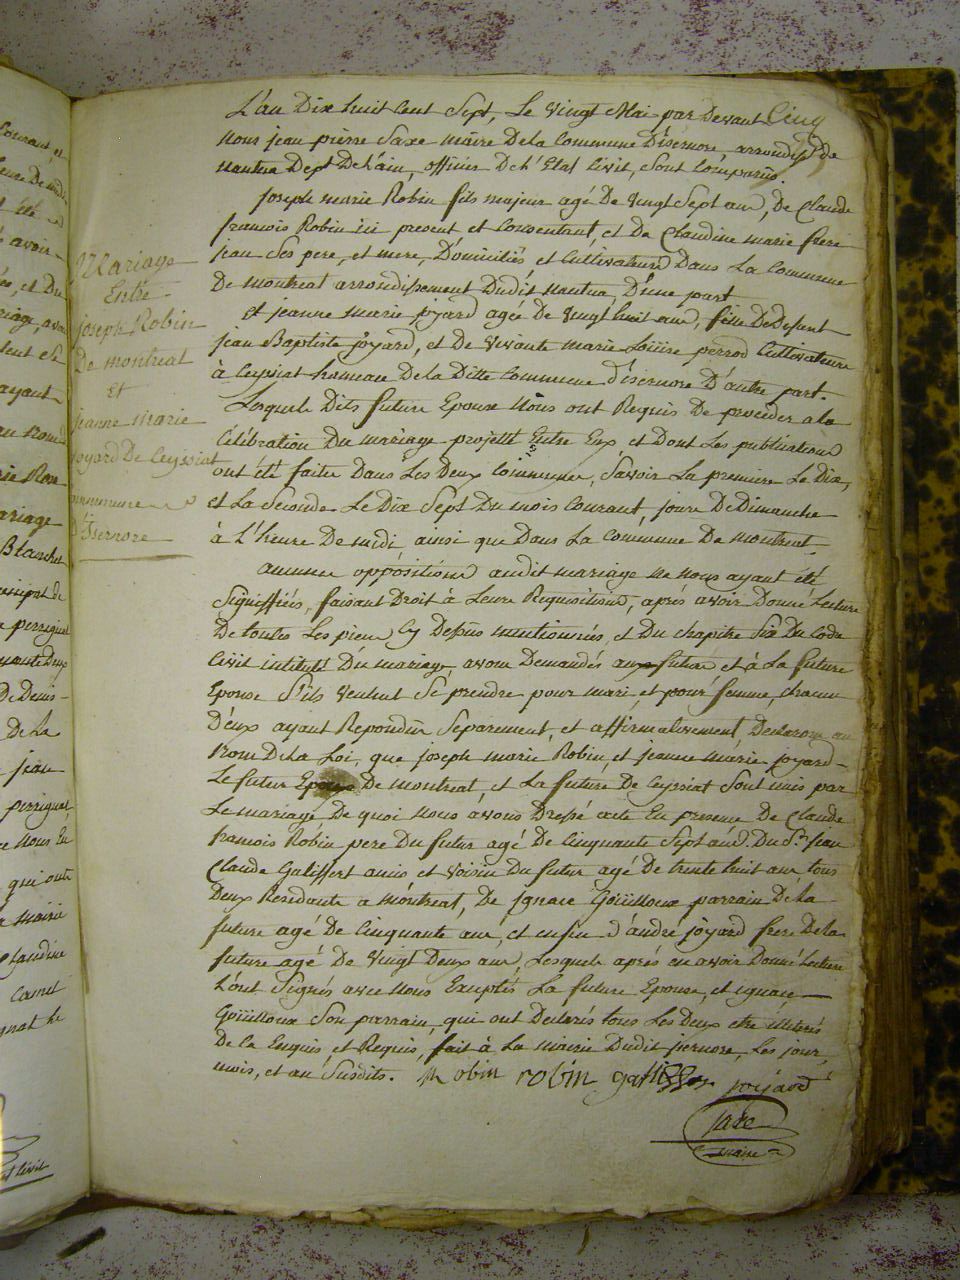 Cinq
L'an Dix huit Cent Sept, Le Vingt Mai par Devant
nous jean pierre Saxe maire De la Commune D'isernore arrondisst de
nantua Dept De l'ain, officier De l'Etat Civil, Sont Comparus.
joseph marie Robin fils majeur agé De Vingt Sept ans, De Claude
françois Robin ici present et Consentant, et De Claudine marie frere
jean Ses pere, et mere, Domiciliés et Cultivateurs Dans La Commune
De montreal arrondissement Dudit nantua, D'une part
et jeanne marie joyard agée De Vingt huit ans, fille De Defunt
jean Baptiste joyard, et De Vivante marie Loüise perrod Cultivateurs
à Ceyssiat hameau De la Ditte Commune d'isernore D'autre part.
Lesquels Dits future Epoux Nous ont Requis De proceder a la
Célébration Du mariage projetté Entre Eux et Dont Les publications
ont été faites Dans Les Deux Communes, Savoir La premiere Le Dix,
et La Seconde Le Dix Sept Du mois Courant, jours De Dimanche
à L'heure De midi, ainsi que Dans La Commune De montreal.
aucunes oppositions audit mariage ne nous ayant été
Signiffiés, faisant Droit à Leurs Requisitions, après avoir Donné Lecture
De toutes Les pieces Cy Dessus mentionnées, et Du chapitre Six Du Code
Civil intitulé Du mariage, avons Demandés aux future et à La future
Epouse S'ils Veulent Se prendre pour mari, et pour femme, chacun
D'eux ayant Repondu Séparement, et affirmativement, Declarons au
Nom De la Loi, que joseph marie Robin et jeanne marie joyard
Le futur Epoux De montreal, et La future De Ceyssiat Sont unis par
Le mariage De quoi Nous avons Dressé acte En presence De Claude
françois Robin pere Du futur agé De Cinquante Sept ans. Du Sr. jean
Claude Galiffert amis et Voisin Du futur agé De trente huit ans, tous
Deux Residants a montreal, De ignace Goüilloux parrain De la
future agé De Cinquante ans, et enfin d'andré joyard frere De la
future agé De Vingt Deux ans, Lesquels après en avoir Donné Lecture
L'ont Signés avec Nous Exceptés La future Epouse, et ignace
Goüilloux Son parrain, qui ont Declarés tous Les Deux etre illiterés
De Ce Enquis, et Requis, fait à La mairie Dudit isernore, Les jour,
mois, et an Susdits. Robin robin joyard
Saxe
maire
Mariage
Entre
joseph Robin
De montreal
Et
jeanne marie
joyard De Ceyssiat
Commune
D'isernore